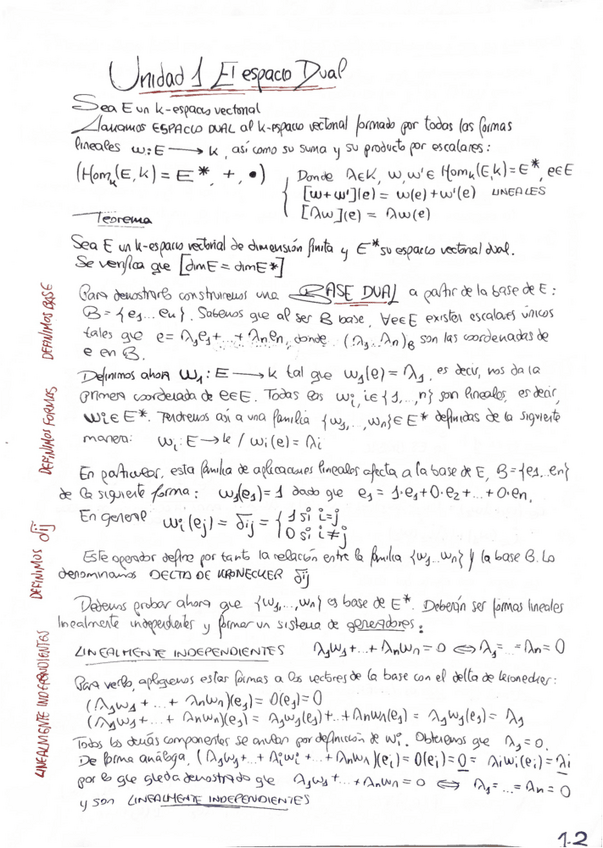 Unidad 1 El espacio Dual
Sea E un k-espacio vectorial
Llamamos ESPACIO DUAL al k-espacio vectorial formado por todas las formas
lineales w: E → k, así como su suma y su producto por escalares:
(Homₖ(E, k) = E*, +, •)
Donde λ∈K, w, w'∈ Homₖ(E,k) = E*, e∈E
[w+w'](e) = w(e) + w'(e) LINEALES
[λw](e) = λw(e)
Teorema
Sea E un k-espacio vectorial de dimensión finita y E* su espacio vectorial dual.
Se verifica que [dim E = dim E*]
Para demostrarlo construiremos una BASE DUAL a partir de la base de E:
B = {e₁ ... eₙ}. Sabemos que al ser B base, ∀e∈E existen escalares únicos
tales que e = λ₁e₁ + ... + λₙeₙ, donde (λ₁...λₙ)_B son las coordenadas de
e en B.
DEFINIMOS BASE
Definimos ahora w₁: E → k tal que w₁(e) = λ₁, es decir, nos da la
primera coordenada de e∈E. Todas las wᵢ, i∈{1,...,n} son lineales, es decir,
wᵢ∈E*. Tendremos así a una familia {w₁,...,wₙ}∈E* definidas de la siguiente
manera: wᵢ: E → k / wᵢ(e) = λᵢ
DEFINIMOS FORMAS
En particular, esta familia de aplicaciones lineales afecta a la base de E, B={e₁...eₙ}
de la siguiente forma: w₁(e₁) = 1 dado que e₁ = 1·e₁+0·e₂+...+0·eₙ.
En general wᵢ(eⱼ) = δᵢⱼ = { 1 si i=j
0 si i≠j
Este operador define por tanto la relación entre la familia {w₁...wₙ} y la base B. Lo
denominamos DELTA DE KRONECKER δᵢⱼ
DEFINIMOS δᵢⱼ
Debemos probar ahora que {w₁,...,wₙ} es base de E*. Deberán ser formas lineales
linealmente independientes y formar un sistema de generadores:
LINEALMENTE INDEPENDIENTES λ₁w₁+...+λₙwₙ = 0 ⇔ λ₁=...=λₙ=0
Para verlo, apliquemos estas formas a los vectores de la base con el delta de kronecker:
(λ₁w₁ + ... + λₙwₙ)(e₁) = 0(e₁) = 0
(λ₁w₁ + ... + λₙwₙ)(e₁) = λ₁w₁(e₁) + ... + λₙwₙ(e₁) = λ₁w₁(e₁) = λ₁
Todos los demás componentes se anulan por definición de wᵢ. Obtenemos que λ₁=0.
De forma análoga, (λ₁w₁+...+λᵢwᵢ+...+λₙwₙ)(eᵢ) = 0(eᵢ) = 0 = λᵢwᵢ(eᵢ) = λᵢ
por lo que queda demostrado que λ₁w₁+...+λₙwₙ = 0 ⇔ λ₁=...=λₙ=0
y son LINEALMENTE INDEPENDIENTES
LINEALMENTE INDEPENDIENTES
1.2